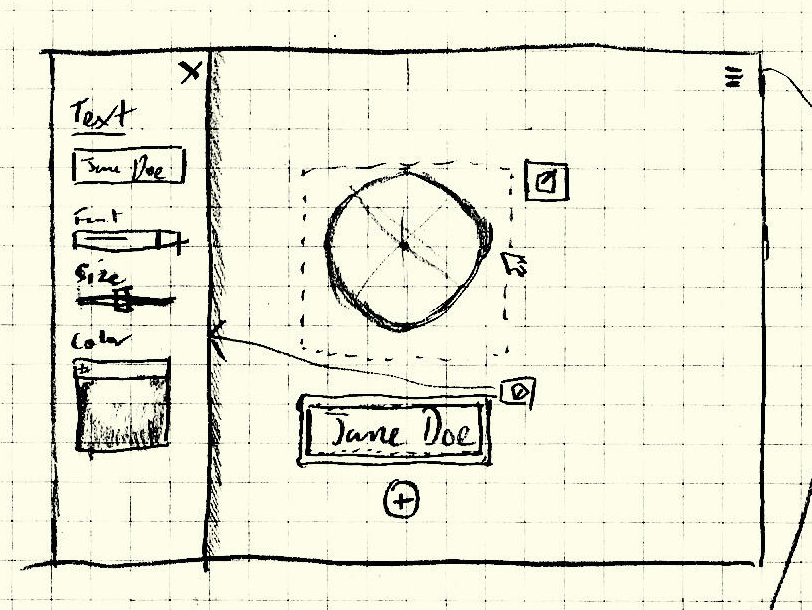 Text
Jane Doe
Font
Size
Color
Jane Doe